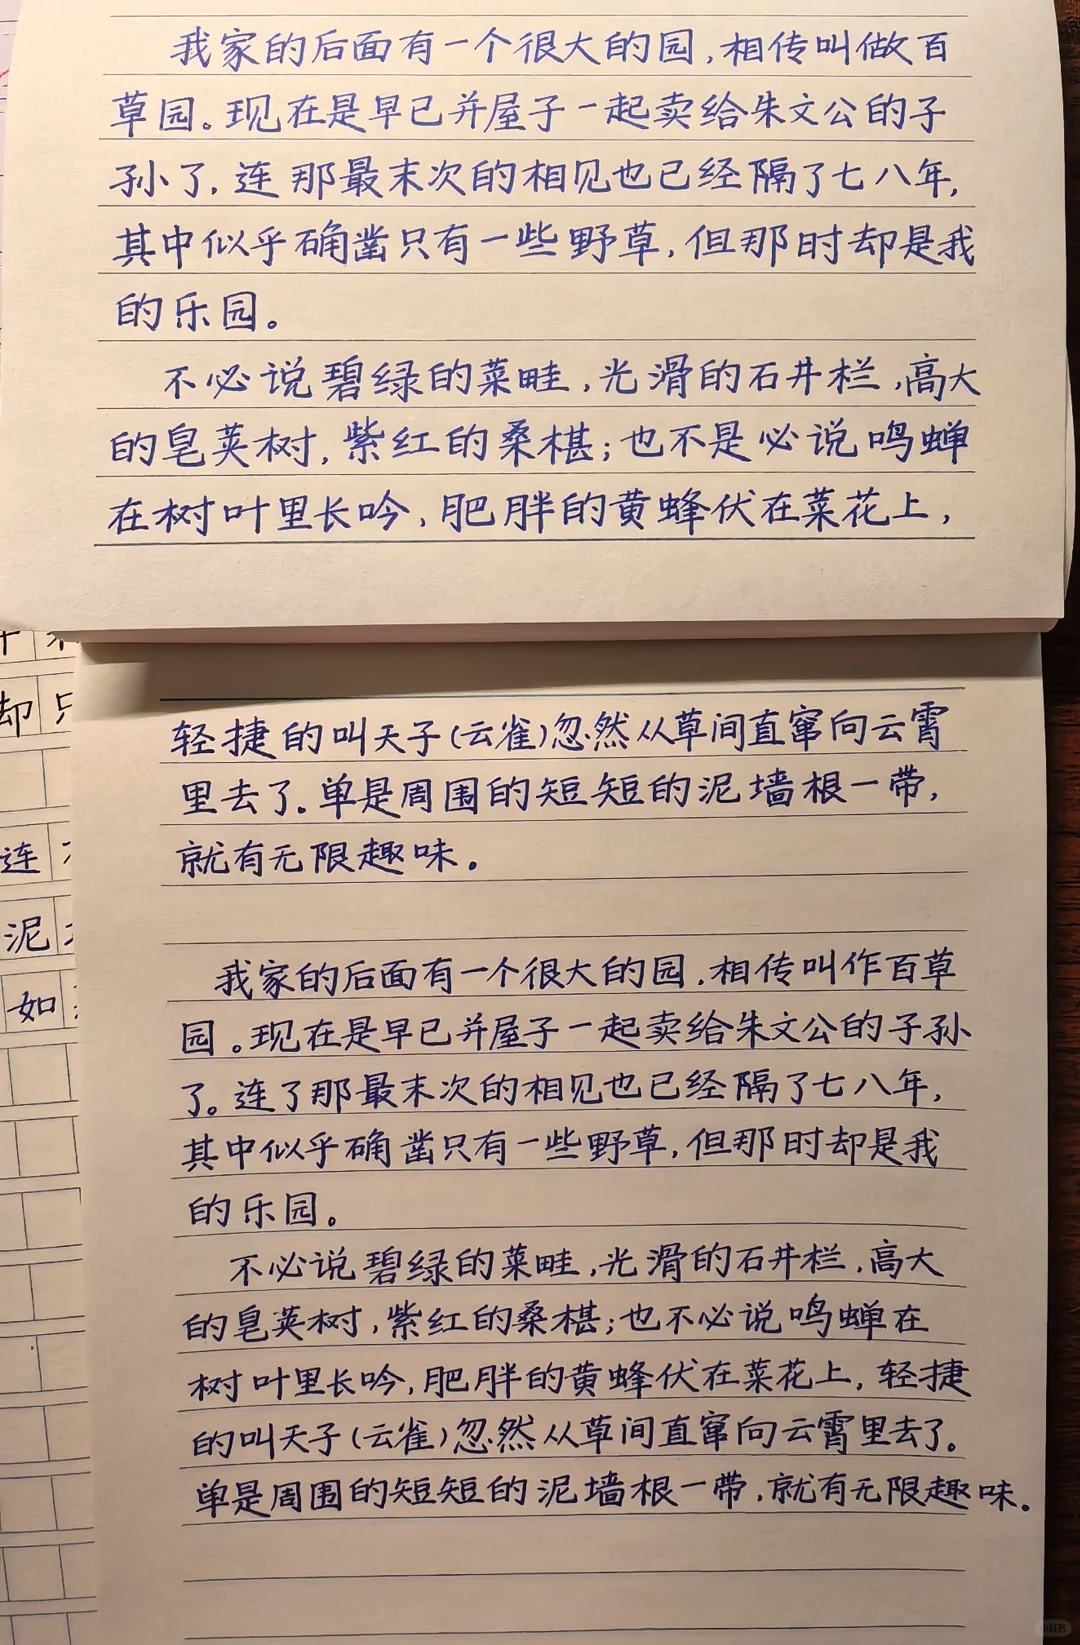 我家的后面有一个很大的园,相传叫做百
草园。现在是早已并屋子一起卖给朱文公的子
孙了,连那最末次的相见也已经隔了七八年,
其中似乎确凿只有一些野草,但那时却是我
的乐园。
不必说碧绿的菜畦,光滑的石井栏,高大
的皂荚树,紫红的桑椹;也不是必说鸣蝉
在树叶里长吟,肥胖的黄蜂伏在菜花上,
轻捷的叫天子(云雀)忽然从草间直窜向云霄
里去了。单是周围的短短的泥墙根一带,
就有无限趣味。
我家的后面有一个很大的园,相传叫作百草
园。现在是早已并屋子一起卖给朱文公的子孙
了。连了那最末次的相见也已经隔了七八年,
其中似乎确凿只有一些野草,但那时却是我
的乐园。
不必说碧绿的菜畦,光滑的石井栏,高大
的皂荚树,紫红的桑椹;也不必说鸣蝉在
树叶里长吟,肥胖的黄蜂伏在菜花上,轻捷
的叫天子(云雀)忽然从草间直窜向云霄里去了。
单是周围的短短的泥墙根一带,就有无限趣味。
却只
连
泥
如
小红书